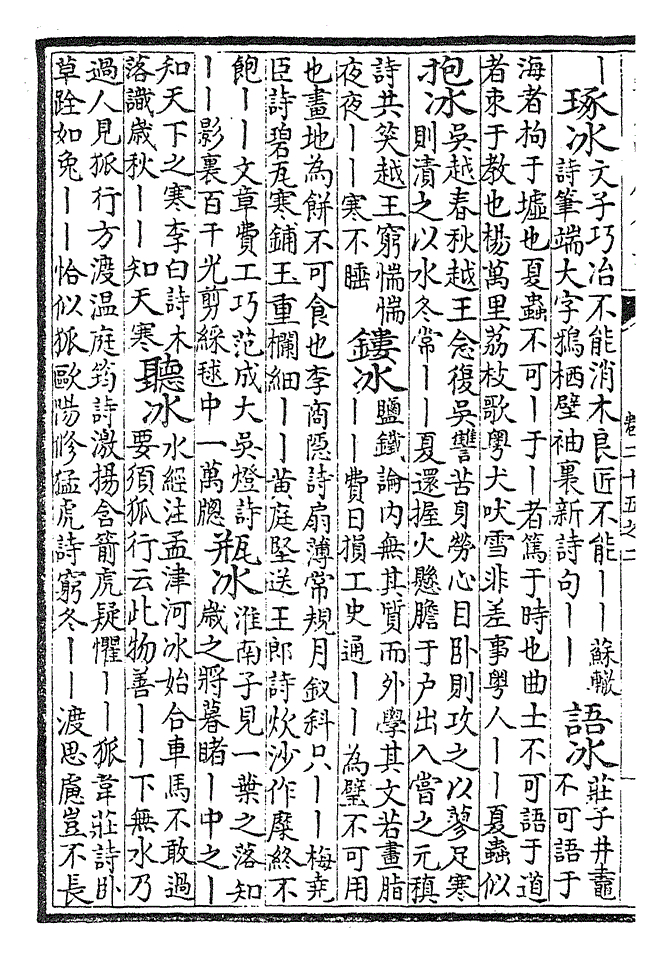 丨
琢冰
文子巧冶不能消木良匠不能丨丨蘇轍
詩筆端大字鴉栖壁袖裏新詩句丨丨
語冰
莊子井鼃
不可語于
海者拘于墟也夏蟲不可丨于丨者篤于時也曲士不可語于道
者束于教也楊萬里荔枝歌粵犬吠雪非差事粵人丨丨夏蟲似
抱冰
吳越春秋越王念復吳讐苦身勞心目卧則攻之以蓼足寒
則漬之以水冬常丨丨夏還握火懸膽于户出入嘗之元稹
詩共笑越王窮惴惴
夜夜丨丨寒不睡
鏤冰
鹽鐵論内無其質而外學其文若畫脂
丨丨費日損工史通丨丨為璧不可用
也畫地為餅不可食也李商隱詩扇薄常規月釵斜只丨丨梅堯
臣詩碧瓦寒鋪玉重欄細丨丨黄庭堅送王郎詩炊沙作糜終不
飽丨丨文章費工巧范成大吳燈詐
丨丨影裏百千光剪綵毬中一萬牕
瓶冰
淮南子見一葉之落知
歲之將暮睹丨中之丨
知天下之寒李白詩木
落識歲秋丨丨知天寒
聽冰
水經注孟津河冰始合車馬不敢過
要須狐行云此物善丨丨下無水乃
過人見狐行方渡温庭筠詩激揚含箭虎疑懼丨丨狐韋莊詩卧
草跧如兔丨丨恰似狐歐陽修猛虎詩窮冬丨丨渡思慮豈不長
卷二十五之二